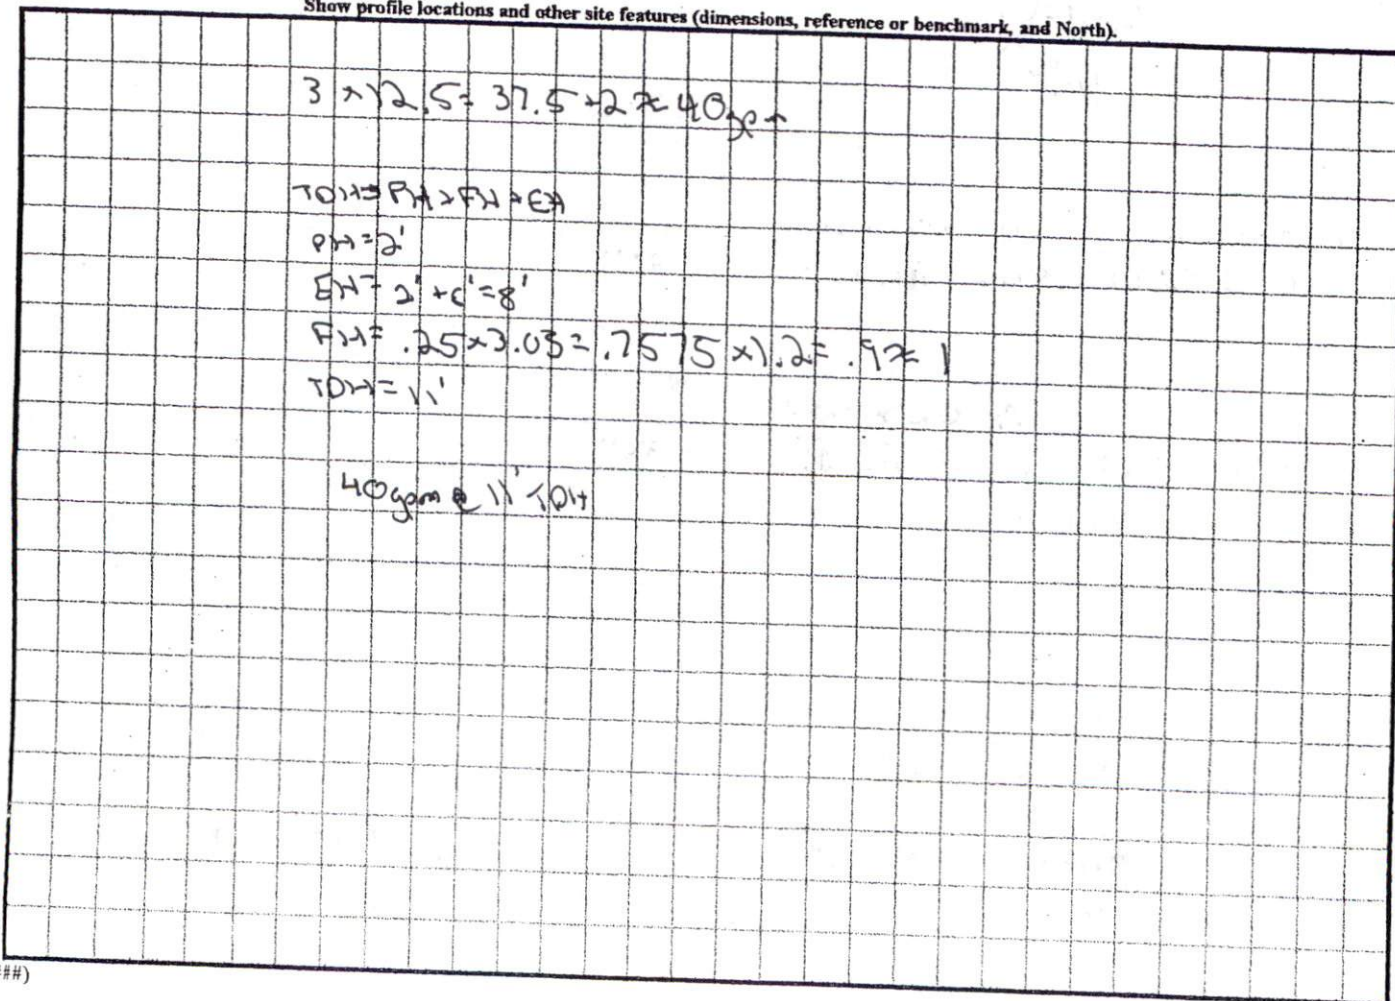 Show profile locations and other site features (dimensions, reference or benchmark, and North).
3 × 12.5 = 37.5 + 2 ≈ 40gpm
TDH = PH + FH + EH
PH = 2'
EH = 2' + 6' = 8'
FH = .25 × 3.03 = .7575 × 1.2 = .9 ≈ 1
TDH = 11'
40gpm @ 11' TDH
##)